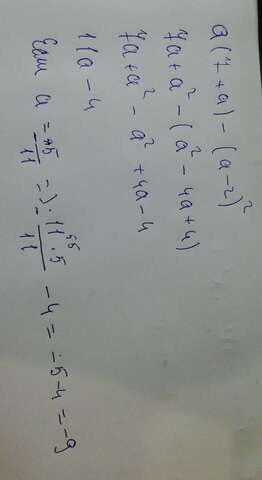 a(7+a)-(a-2)²
7a+a²-(a²-4a+4)
7a+a²-a²+4a-4
11a-4
Если a = -5/11 => -11·5/11 - 4 = -5-4 = -9